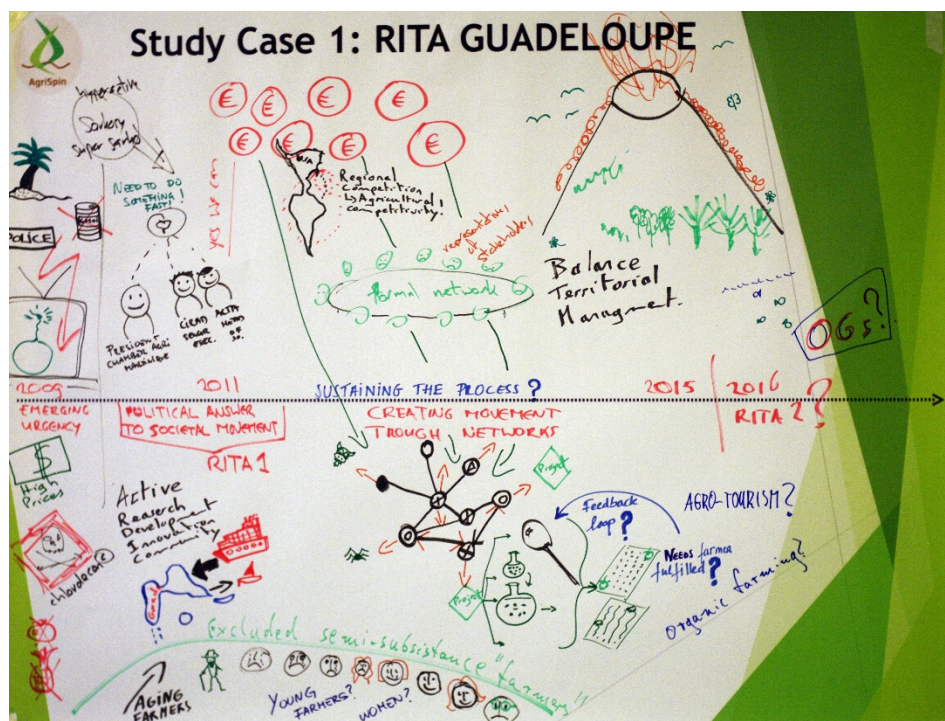 Study Case 1: RITA GUADELOUPE
AgriSpin
hyperactive
Sarkozy
super
NEED TO DO
SOMETHING!
FAST!
POLICE
PRESIDENT
CHAMBER AGRI
MARTINIQUE
CIRAD
SENIOR
EXEC.
ACTA
€ € € €
€ € € €
Regional
Competition
↳ Agricultural
competitivity.
representatives
of
stakeholders
formal network
Balance
Territorial
Managment.
OGs?
2009
2011
SUSTAINING THE PROCESS?
2015
2016
RITA 2?
EMERGING
URGENCY
POLITICAL ANSWER
TO SOCIETAL MOVEMENT
RITA 1
CREATING MOVEMENT
TROUGH NETWORKS
$
High
Prices
chlordecone
Active
Research
Development
Innovation
Community
Project
Project
Feedback
loop?
NEEDS farmer
fulfilled?
AGRO-TOURISM?
organic farming?
Excluded semi-subsistance "farmers"
AGING
FARMERS
YOUNG
FARMERS?
WOMEN?